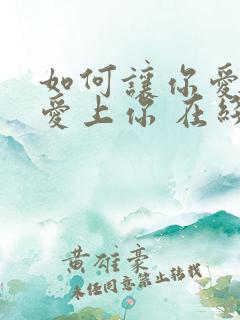 如何讓你愛
愛上你 在線
黄雄豪
未经同意禁止转载